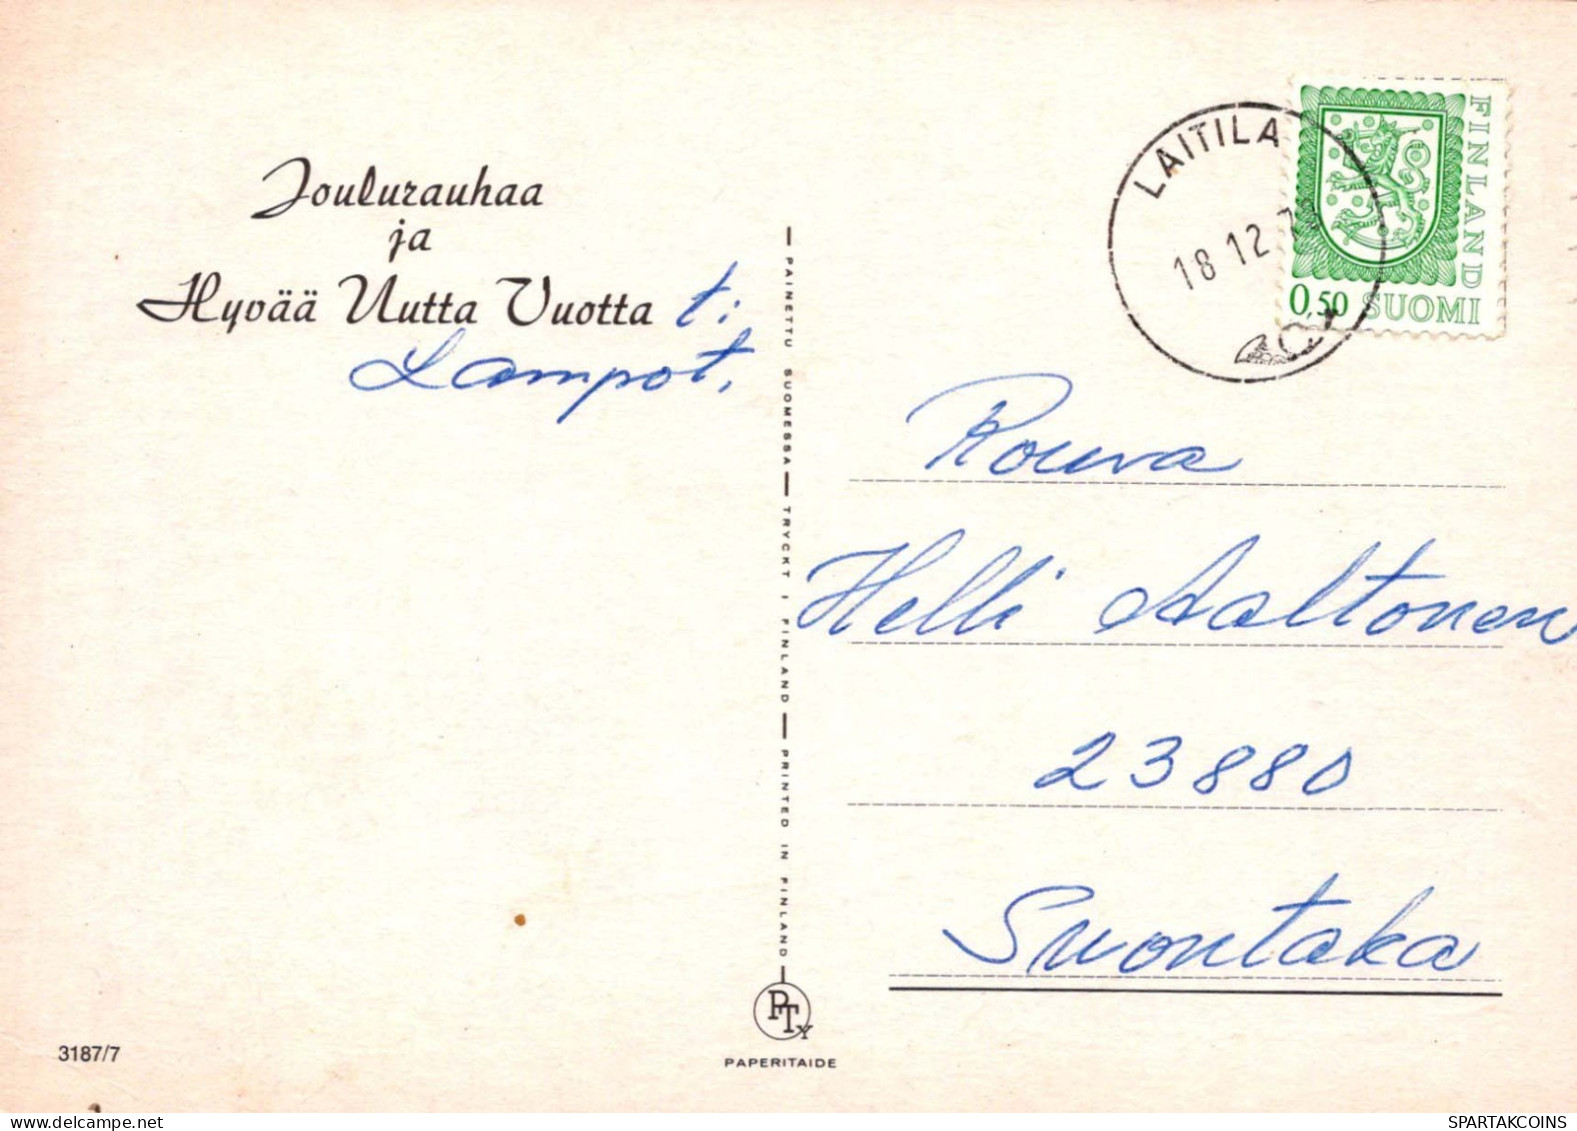 Joulurauhaa
ja
Hyvää Uutta Vuotta t:
Lampot.
PAINETTU SUOMESSA — TRYCKT I FINLAND — PRINTED IN FINLAND
PTY
PAPERITAIDE
3187/7
LAITILA
18 12
FINLAND
0,50 SUOMI
Rouva
Helli Aaltonen
23880
Suontaka
delcampe.net
SPARTAKCOINS